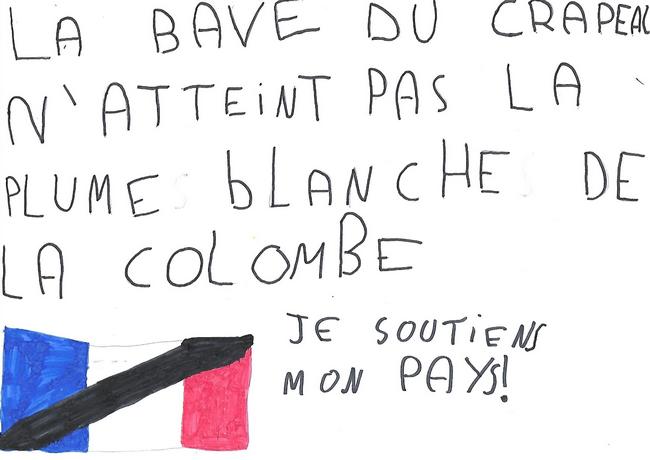 LA BAVE DU CRAPEAU
N'ATTEINT PAS LA
PLUME BLANCHE DE
LA COLOMBE
JE SOUTIENS
MON PAYS!